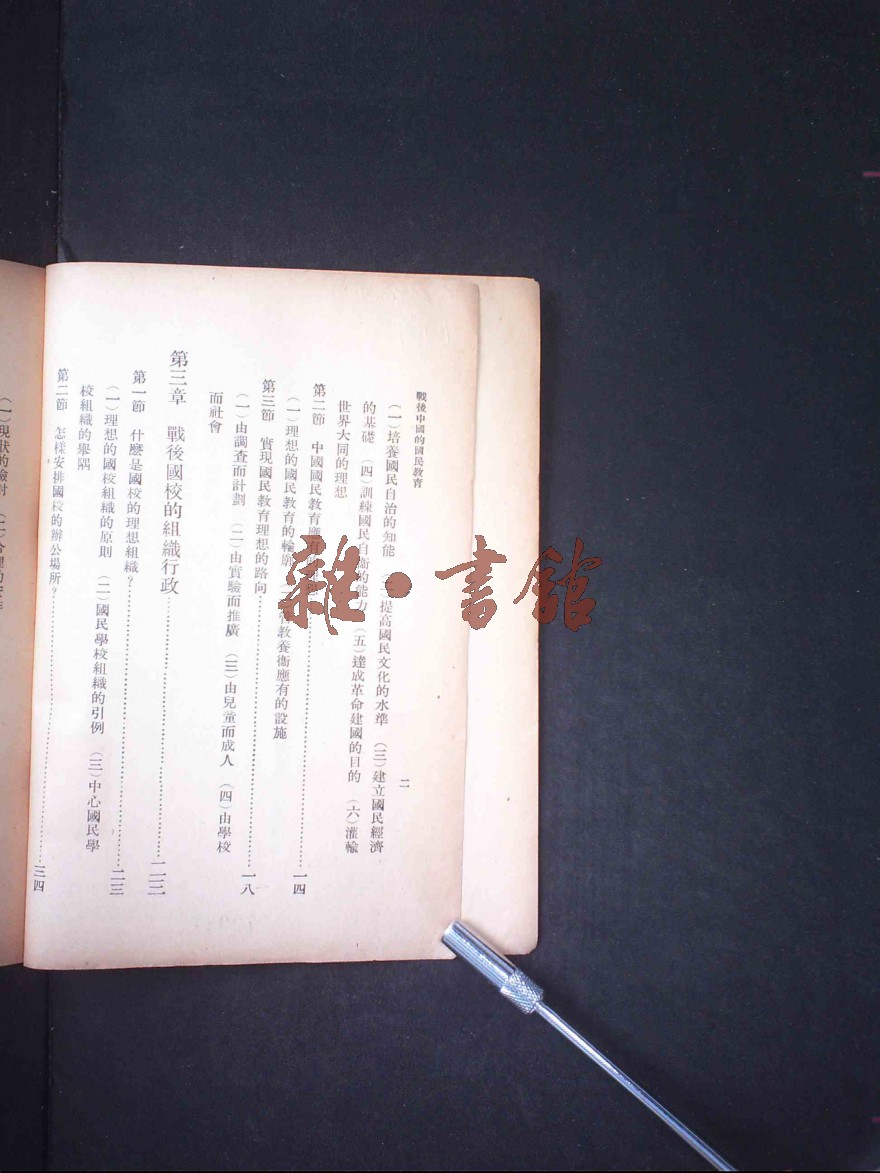 戰後中國的國民教育
二
（一）培養國民自治的知能　（二）提高國民文化的水準　（三）建立國民經濟
的基礎　（四）訓練國民自衞的能力　（五）達成革命建國的目的　（六）灌輸
世界大同的理想
第二節　中國國民教育應有的……一四
（一）理想的國民教育的輪廓　教養衞應有的設施
第三節　實現國民教育理想的路向……一八
（一）由調查而計劃　（二）由實驗而推廣　（三）由兒童而成人　（四）由學校
而社會
第三章　戰後國校的組織行政……二三
第一節　什麼是國校的理想組織？……二三
（一）理想的國校組織的原則　（二）國民學校組織的引例　（三）中心國民學
校組織的舉隅
第二節　怎樣安排國校的辦公場所？……三四
（一）現狀的檢討
雜·書館